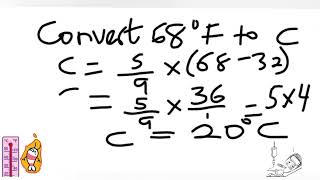 Convert 68°F to C
C = 5/9 × (68-32)
= 5/9 × 36/1 = 5×4
C = 20°C